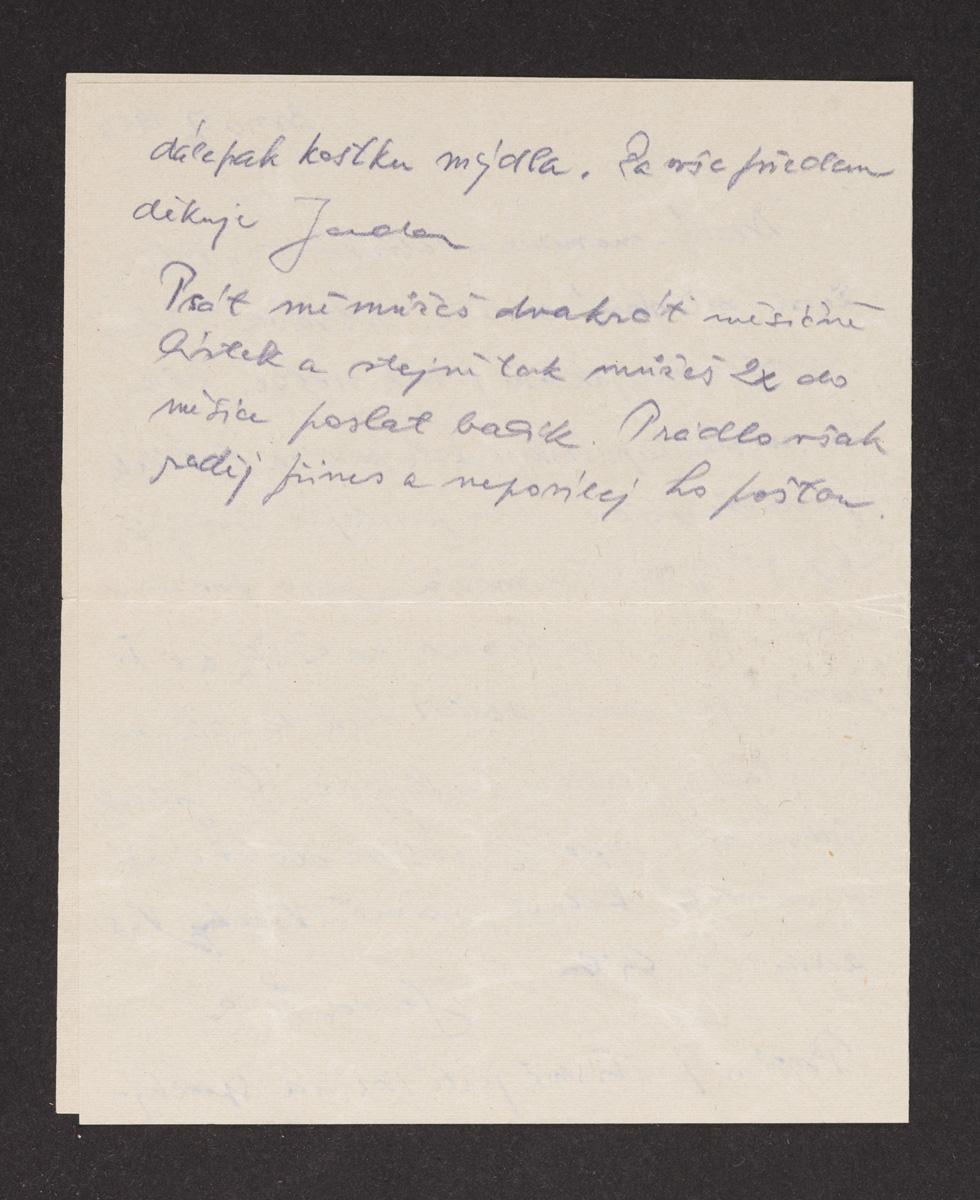 dále pak kostku mýdla. Za vše předem
děkuje Jenda
Psát mě můžeš dvakrát měsíčně
lístek a stejně tak můžeš 2x do
měsíce poslat balík. Prádlo však
raděj přines a neposílej ho poštou.